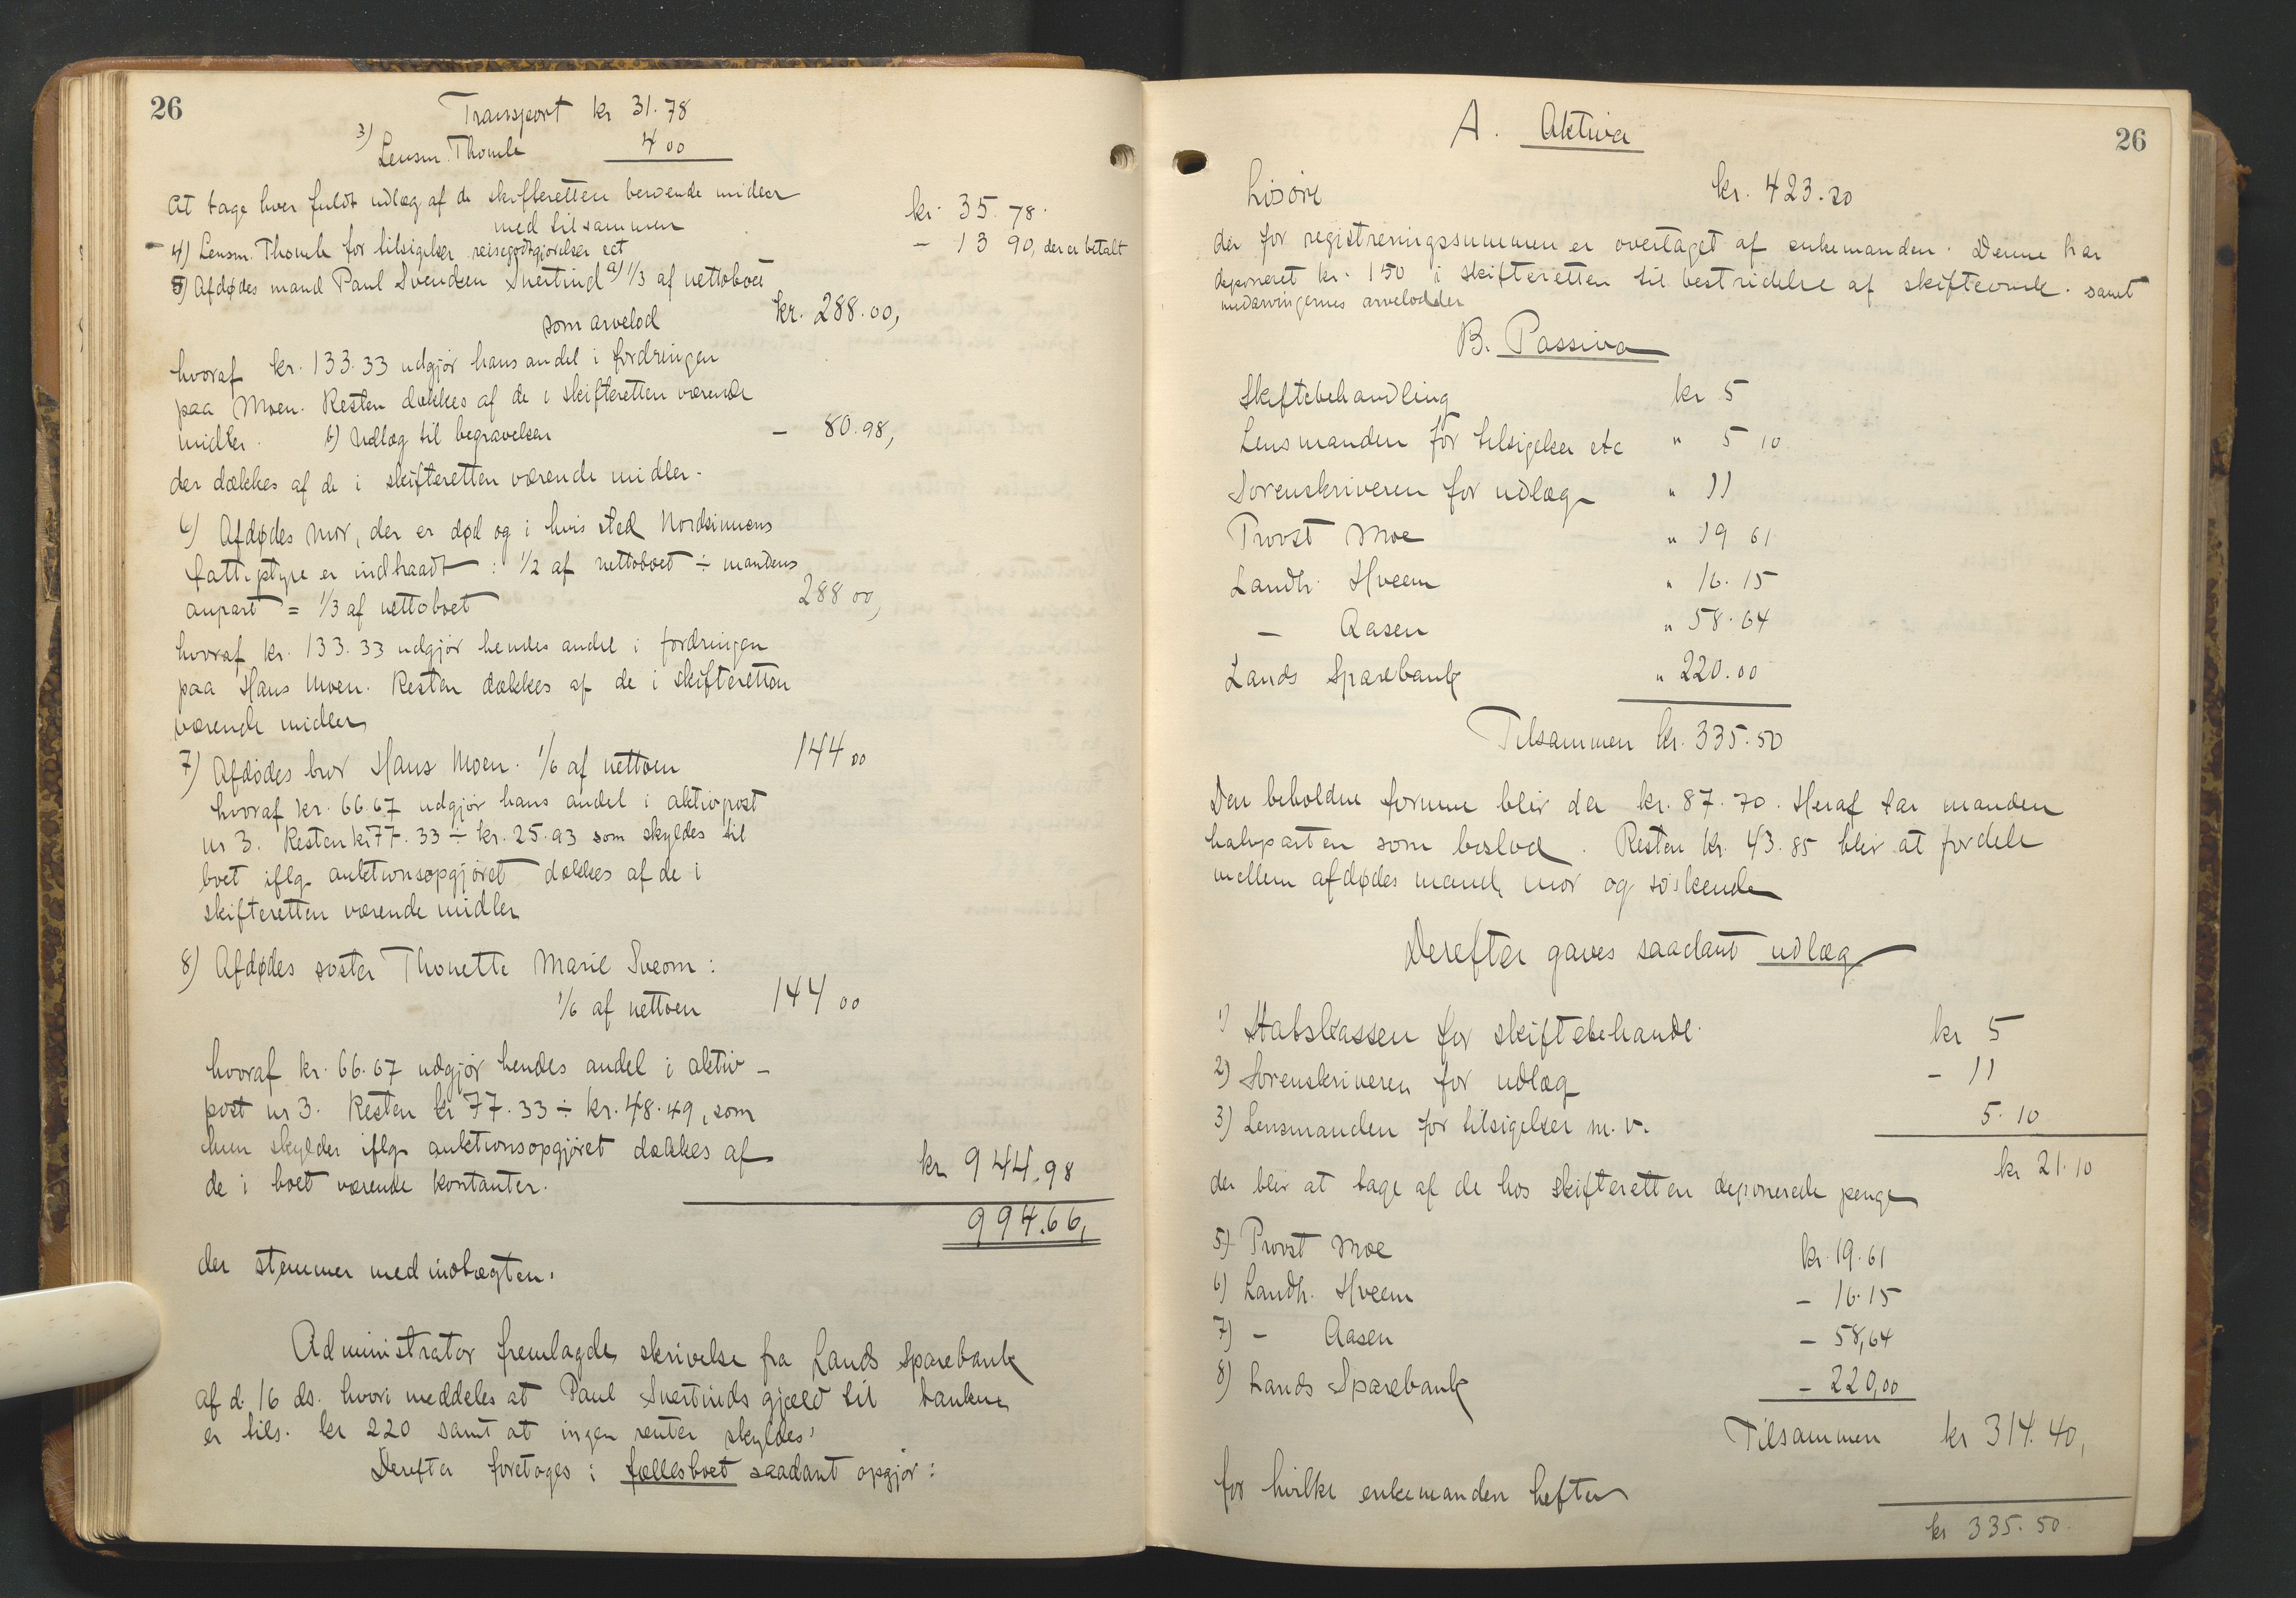 26
Transport kr 31.78
3) Lensm. Thomle 4 00
At tage hver fuldt udlæg af de skifteretten beroende midler
med tilsammen kr. 35.78.
4) Lensm. Thomle for tilsigelser reisegodtgjørelser ect - 13 90, der er betalt
5) Afdødes mand Paul Svendsen Snertind a) 1/3 af nettoboet
som arvelod kr. 288.00,
hvoraf kr. 133.33 udgjør hans andel i fordringen
paa Moen. Resten dækkes af de i skifteretten værende
midler. b) Udlæg til begravelsen - 80.98,
der dækkes af de i skifteretten værende midler.
6) Afdødes mor, der er død og i hvis sted Nordsinnens
fattigstyre er indtraadt: 1/2 af nettoboet ÷ mandens
anpart = 1/3 af nettoboet 288 00,
hvoraf kr. 133.33 udgjør hendes andel i fordringen
paa Hans Moen. Resten dækkes af de i skifteretten
værende midler
7) Afdødes bror Hans Moen. 1/6 af nettoen 144 00
hvoraf kr. 66.67 udgjør hans andel i aktivpost
nr 3. Resten kr 77.33 ÷ kr. 25.93 som skyldes til
boet iflg. auktionsopgjøret dækkes af de i
skifteretten værende midler
8) Afdødes søster Thonette Marie Sveom:
1/6 af nettoen 144 00
hvoraf kr. 66.67 udgjør hendes andel i aktiv-
post nr 3. Resten kr 77.33 ÷ kr. 48.49, som
hun skylder iflg. auktionsopgjøret dækkes af
de i boet værende kontanter. kr 944.98
994.66,
der stemmer med indtægten.
Administrator fremlagde skrivelse fra Lands Sparebank
af d. 16 ds. hvori meddeles at Paul Snertinds gjæld til banken
er tils. kr 220 samt at ingen renter skyldes.
Derefter foretoges i fællesboet saadant opgjør:
26
A. Aktiva
Løsøre kr. 423.20
der for registreringssummen er overtaget af enkemanden. Denne har
deponeret kr. 150 i skifteretten til bestridelse af skifteomk. samt
medarvingernes arvelodder
B. Passiva
Skiftebehandling kr 5
Lensmanden for tilsigelser etc " 5 10
Sorenskriveren for udlæg " 11
Provst Moe " 19 61
Landh. Hveem " 16.15
- Aasen " 58.64
Lands Sparebank " 220.00
Tilsammen kr. 335.50
Den beholdne formue blir da kr. 87.70. Heraf tar manden
halvparten som boslod. Resten kr. 43.85 blir at fordele
mellem afdødes mand, mor og søskende
Derefter gaves saadant udlæg
1) Statskassen for skiftebehandl. kr 5
2) Sorenskriveren for udlæg - 11
3) Lensmanden for tilsigelser m.v. 5.10
kr 21.10
der blir at tage af de hos skifteretten deponerede penge
5) Provst Moe kr. 19.61
6) Landh. Hveem - 16.15
7) - Aasen - 58,64
8) Lands Sparebank - 220,00
Tilsammen kr 314.40,
for hvilke enkemanden hefter
kr 335.50.